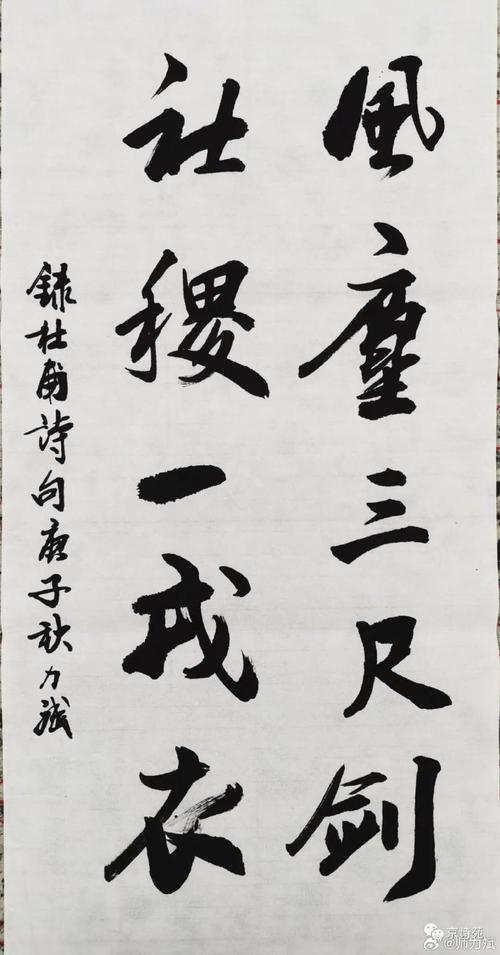 風塵三尺劍
社稷一戎衣
錄杜甫詩句庚子秋力斌
京詩苑
@师力斌